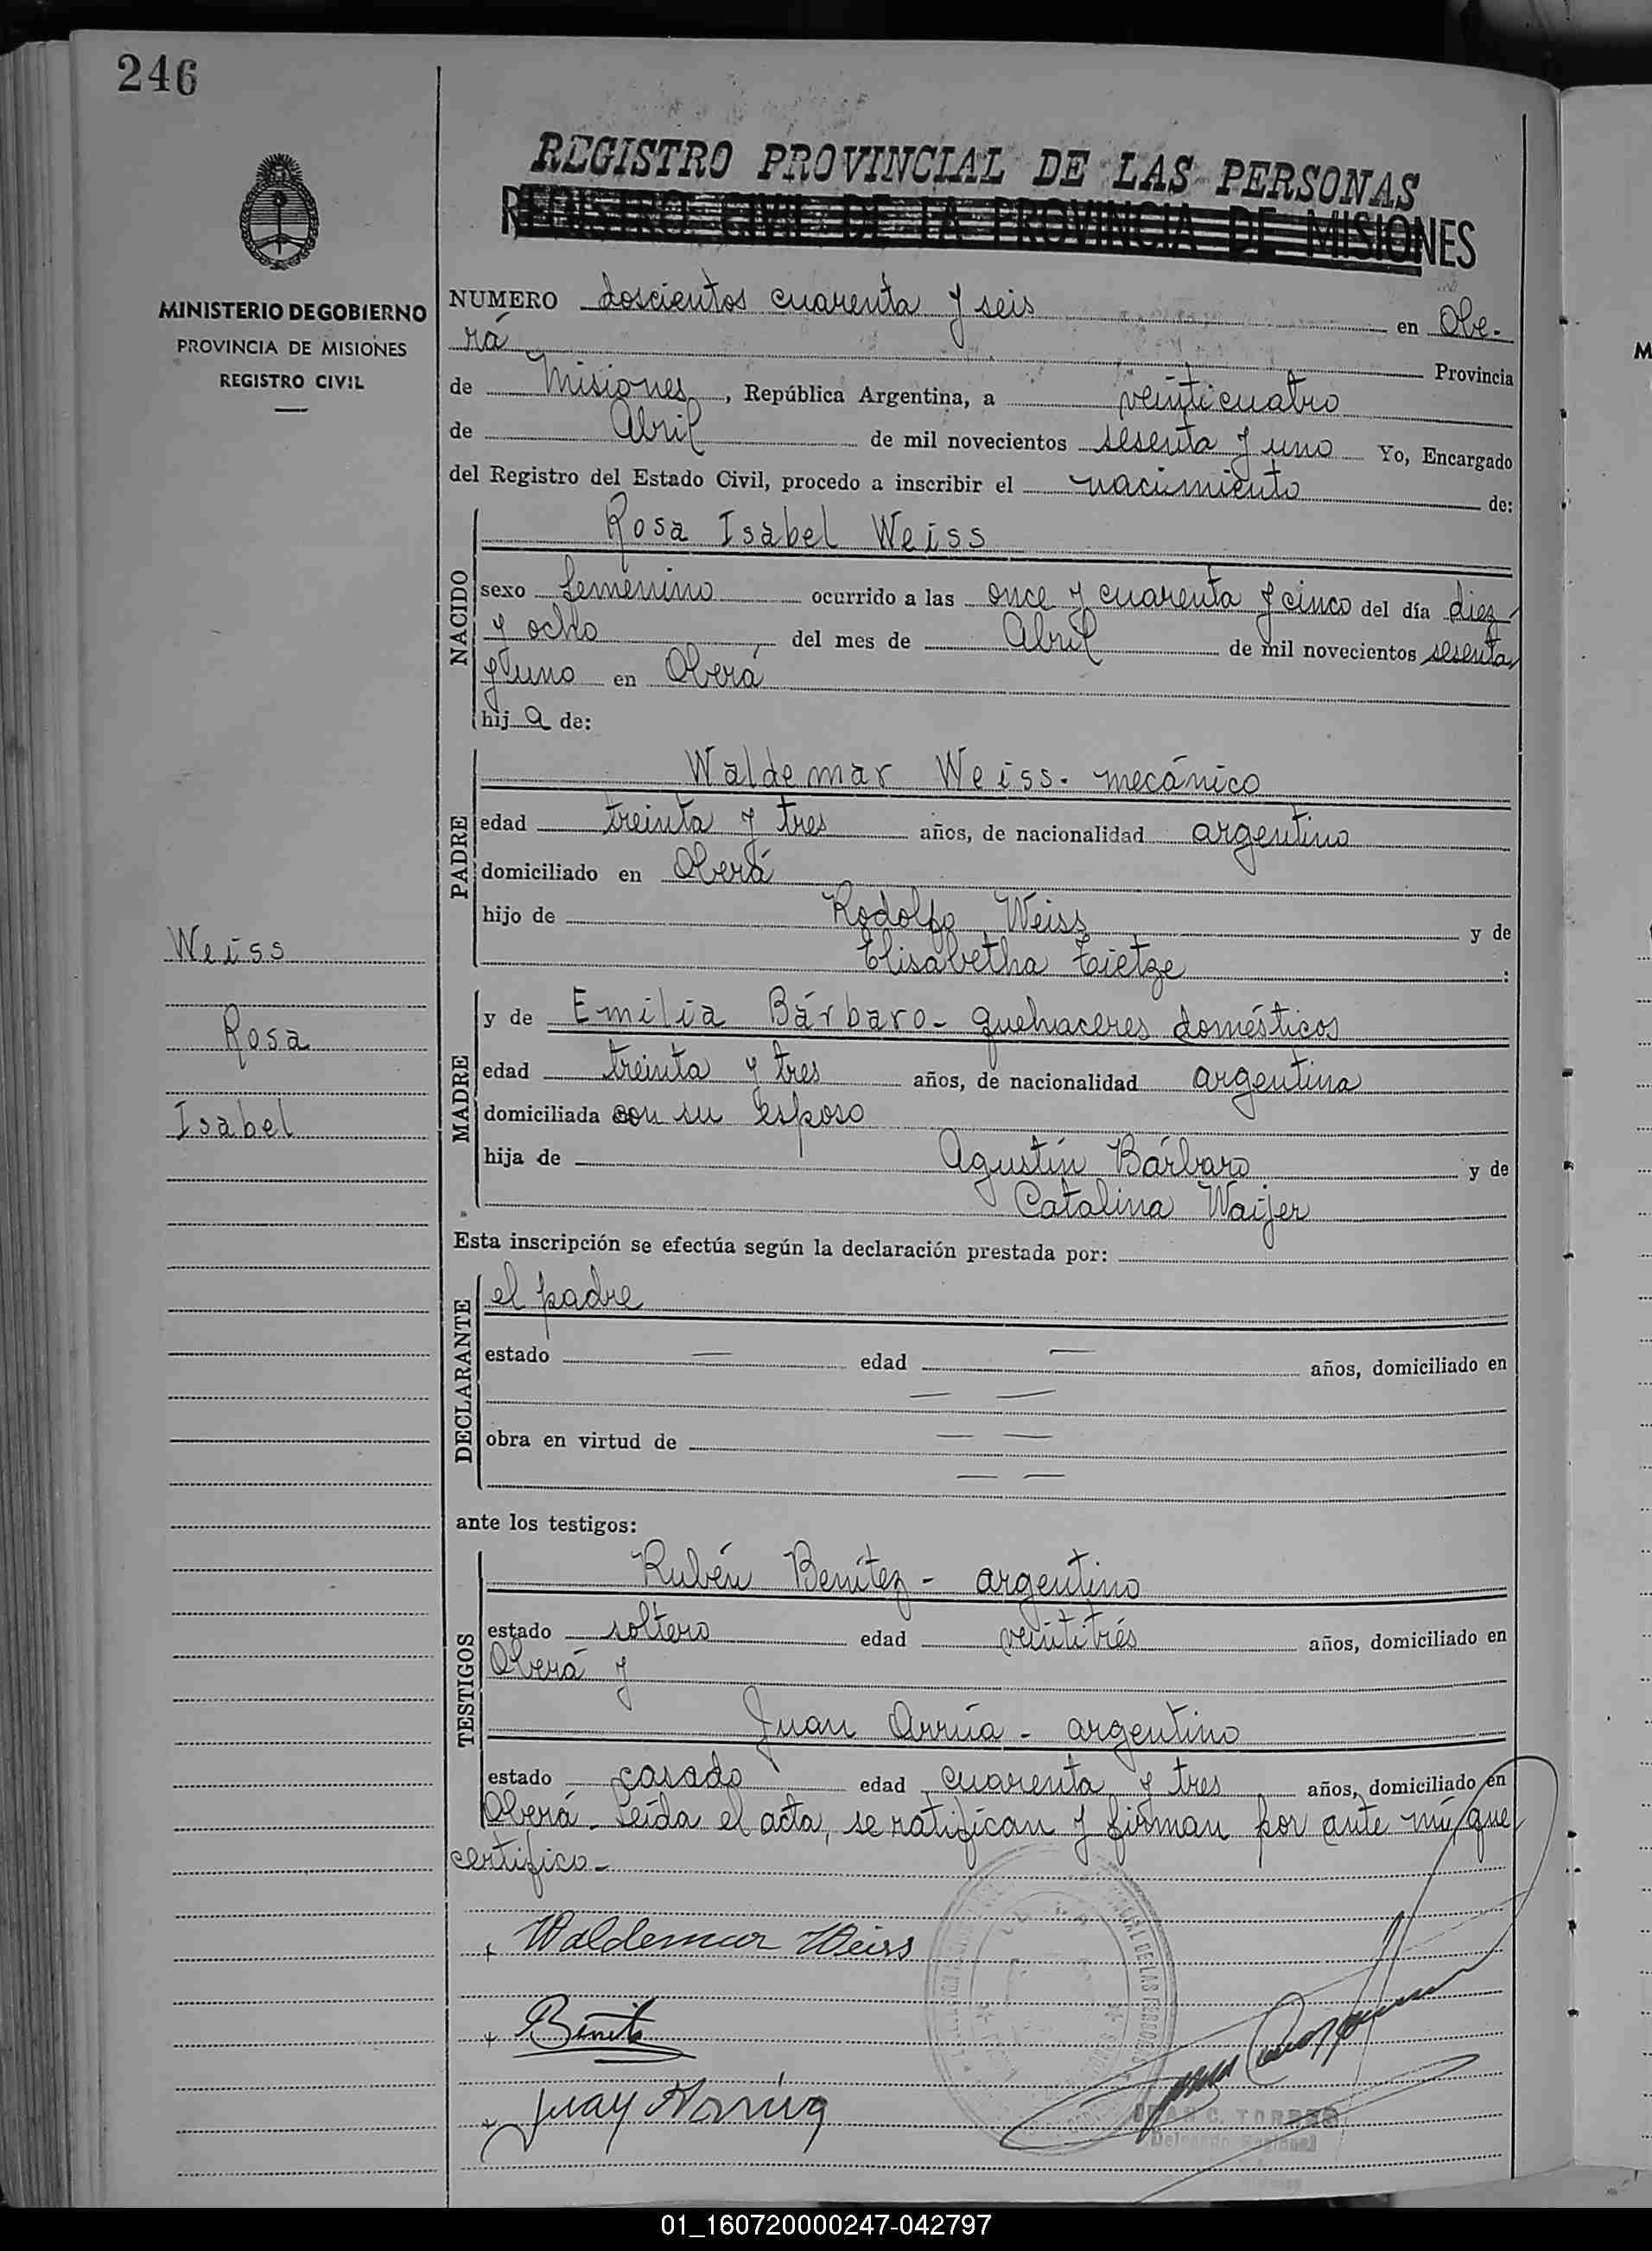 246
REGISTRO PROVINCIAL DE LAS PERSONAS
REGISTRO CIVIL DE LA PROVINCIA DE MISIONES
MINISTERIO DE GOBIERNO
PROVINCIA DE MISIONES
REGISTRO CIVIL
NUMERO doscientos cuarenta y seis en Obe-
rá Provincia
de Misiones, República Argentina, a veinticuatro
de Abril de mil novecientos sesenta y uno Yo, Encargado
del Registro del Estado Civil, procedo a inscribir el nacimiento de:
NACIDO
Rosa Isabel Weiss
sexo femenino ocurrido a las once y cuarenta y cinco del día diez
y ocho del mes de Abril de mil novecientos sesenta
y uno en Oberá
hij a de:
PADRE
Waldemar Weiss - mecánico
edad treinta y tres años, de nacionalidad argentino
domiciliado en Oberá
hijo de Rodolfo Weiss y de
Elisabetha Tietze :
MADRE
y de Emilia Bárbaro - quehaceres domésticos
edad treinta y tres años, de nacionalidad argentina
domiciliada con su esposo
hija de Agustín Bárbaro y de
Catalina Waijer
Weiss
Rosa
Isabel
Esta inscripción se efectúa según la declaración prestada por:
DECLARANTE
el padre
estado — edad — años, domiciliado en
— —
obra en virtud de — —
— —
ante los testigos:
TESTIGOS
Rubén Benítez - argentino
estado soltero edad veintitrés años, domiciliado en
Oberá y
Juan Arrúa - argentino
estado casado edad cuarenta y tres años, domiciliado en
Oberá. Leída el acta, se ratifican y firman por ante mí, que
certifico -
Waldemar Weiss
Benitez
Juan Arrúa
C. TORRES
01_160720000247-042797